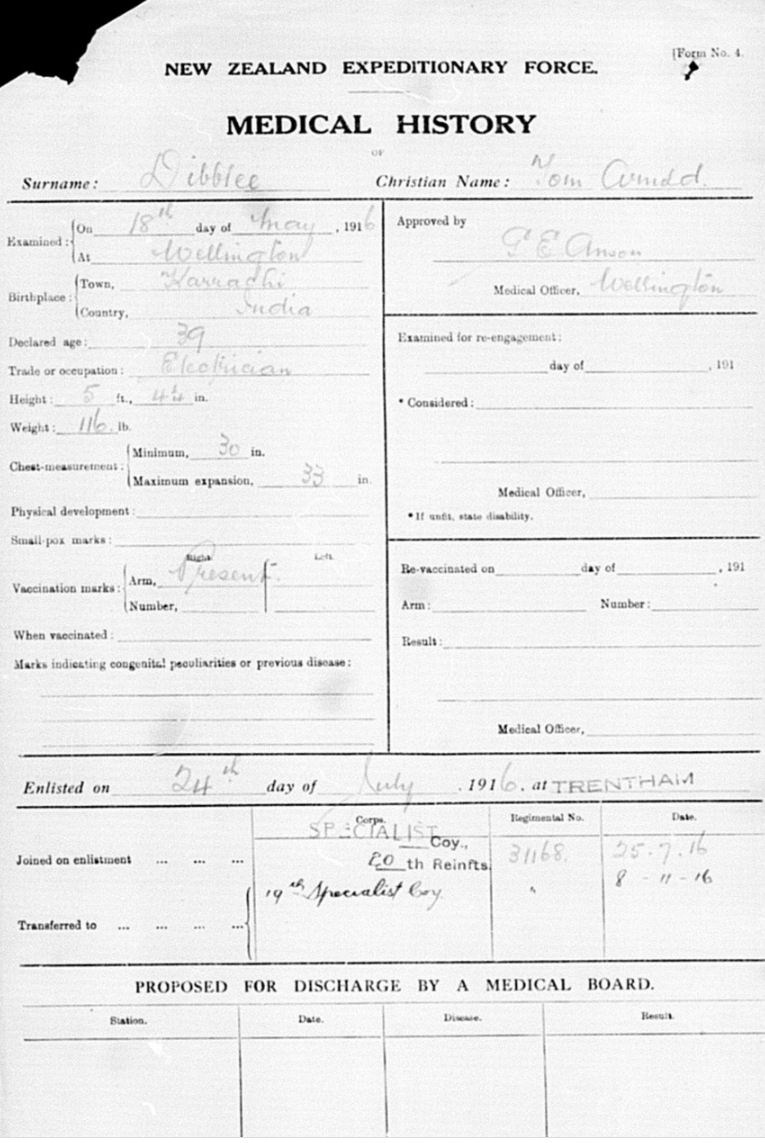 [Form No. 4.
NEW ZEALAND EXPEDITIONARY FORCE.
MEDICAL HISTORY
OF
Surname: Dibblee Christian Name: Tom
Examined: On 18th day of May, 1916
At Wellington
Birthplace: Town, Karrachi
Country, India
Declared age: 39
Trade or occupation: Electrician
Height: 5 ft., 4¼ in.
Weight: 116 lb.
Chest-measurement: Minimum, 30 in.
Maximum expansion, 33 in.
Physical development:
Small-pox marks:
Right. Left.
Vaccination marks: Arm, Present.
Number,
When vaccinated:
Marks indicating congenital peculiarities or previous disease:
Approved by
G E Anson
Medical Officer, Wellington
Examined for re-engagement:
day of , 191
* Considered:
Medical Officer,
* If unfit, state disability.
Re-vaccinated on day of , 191
Arm: Number:
Result:
Medical Officer,
Enlisted on 24th day of July, 1916, at TRENTHAM
Corps. Regimental No. Date.
SPECIALIST Coy.,
Joined on enlistment ... ... ... 20th Reinfts. 31168. 25-7-16
19th Specialist Coy. " 8-11-16
Transferred to ... ... ...
PROPOSED FOR DISCHARGE BY A MEDICAL BOARD.
Station. Date. Disease. Result.